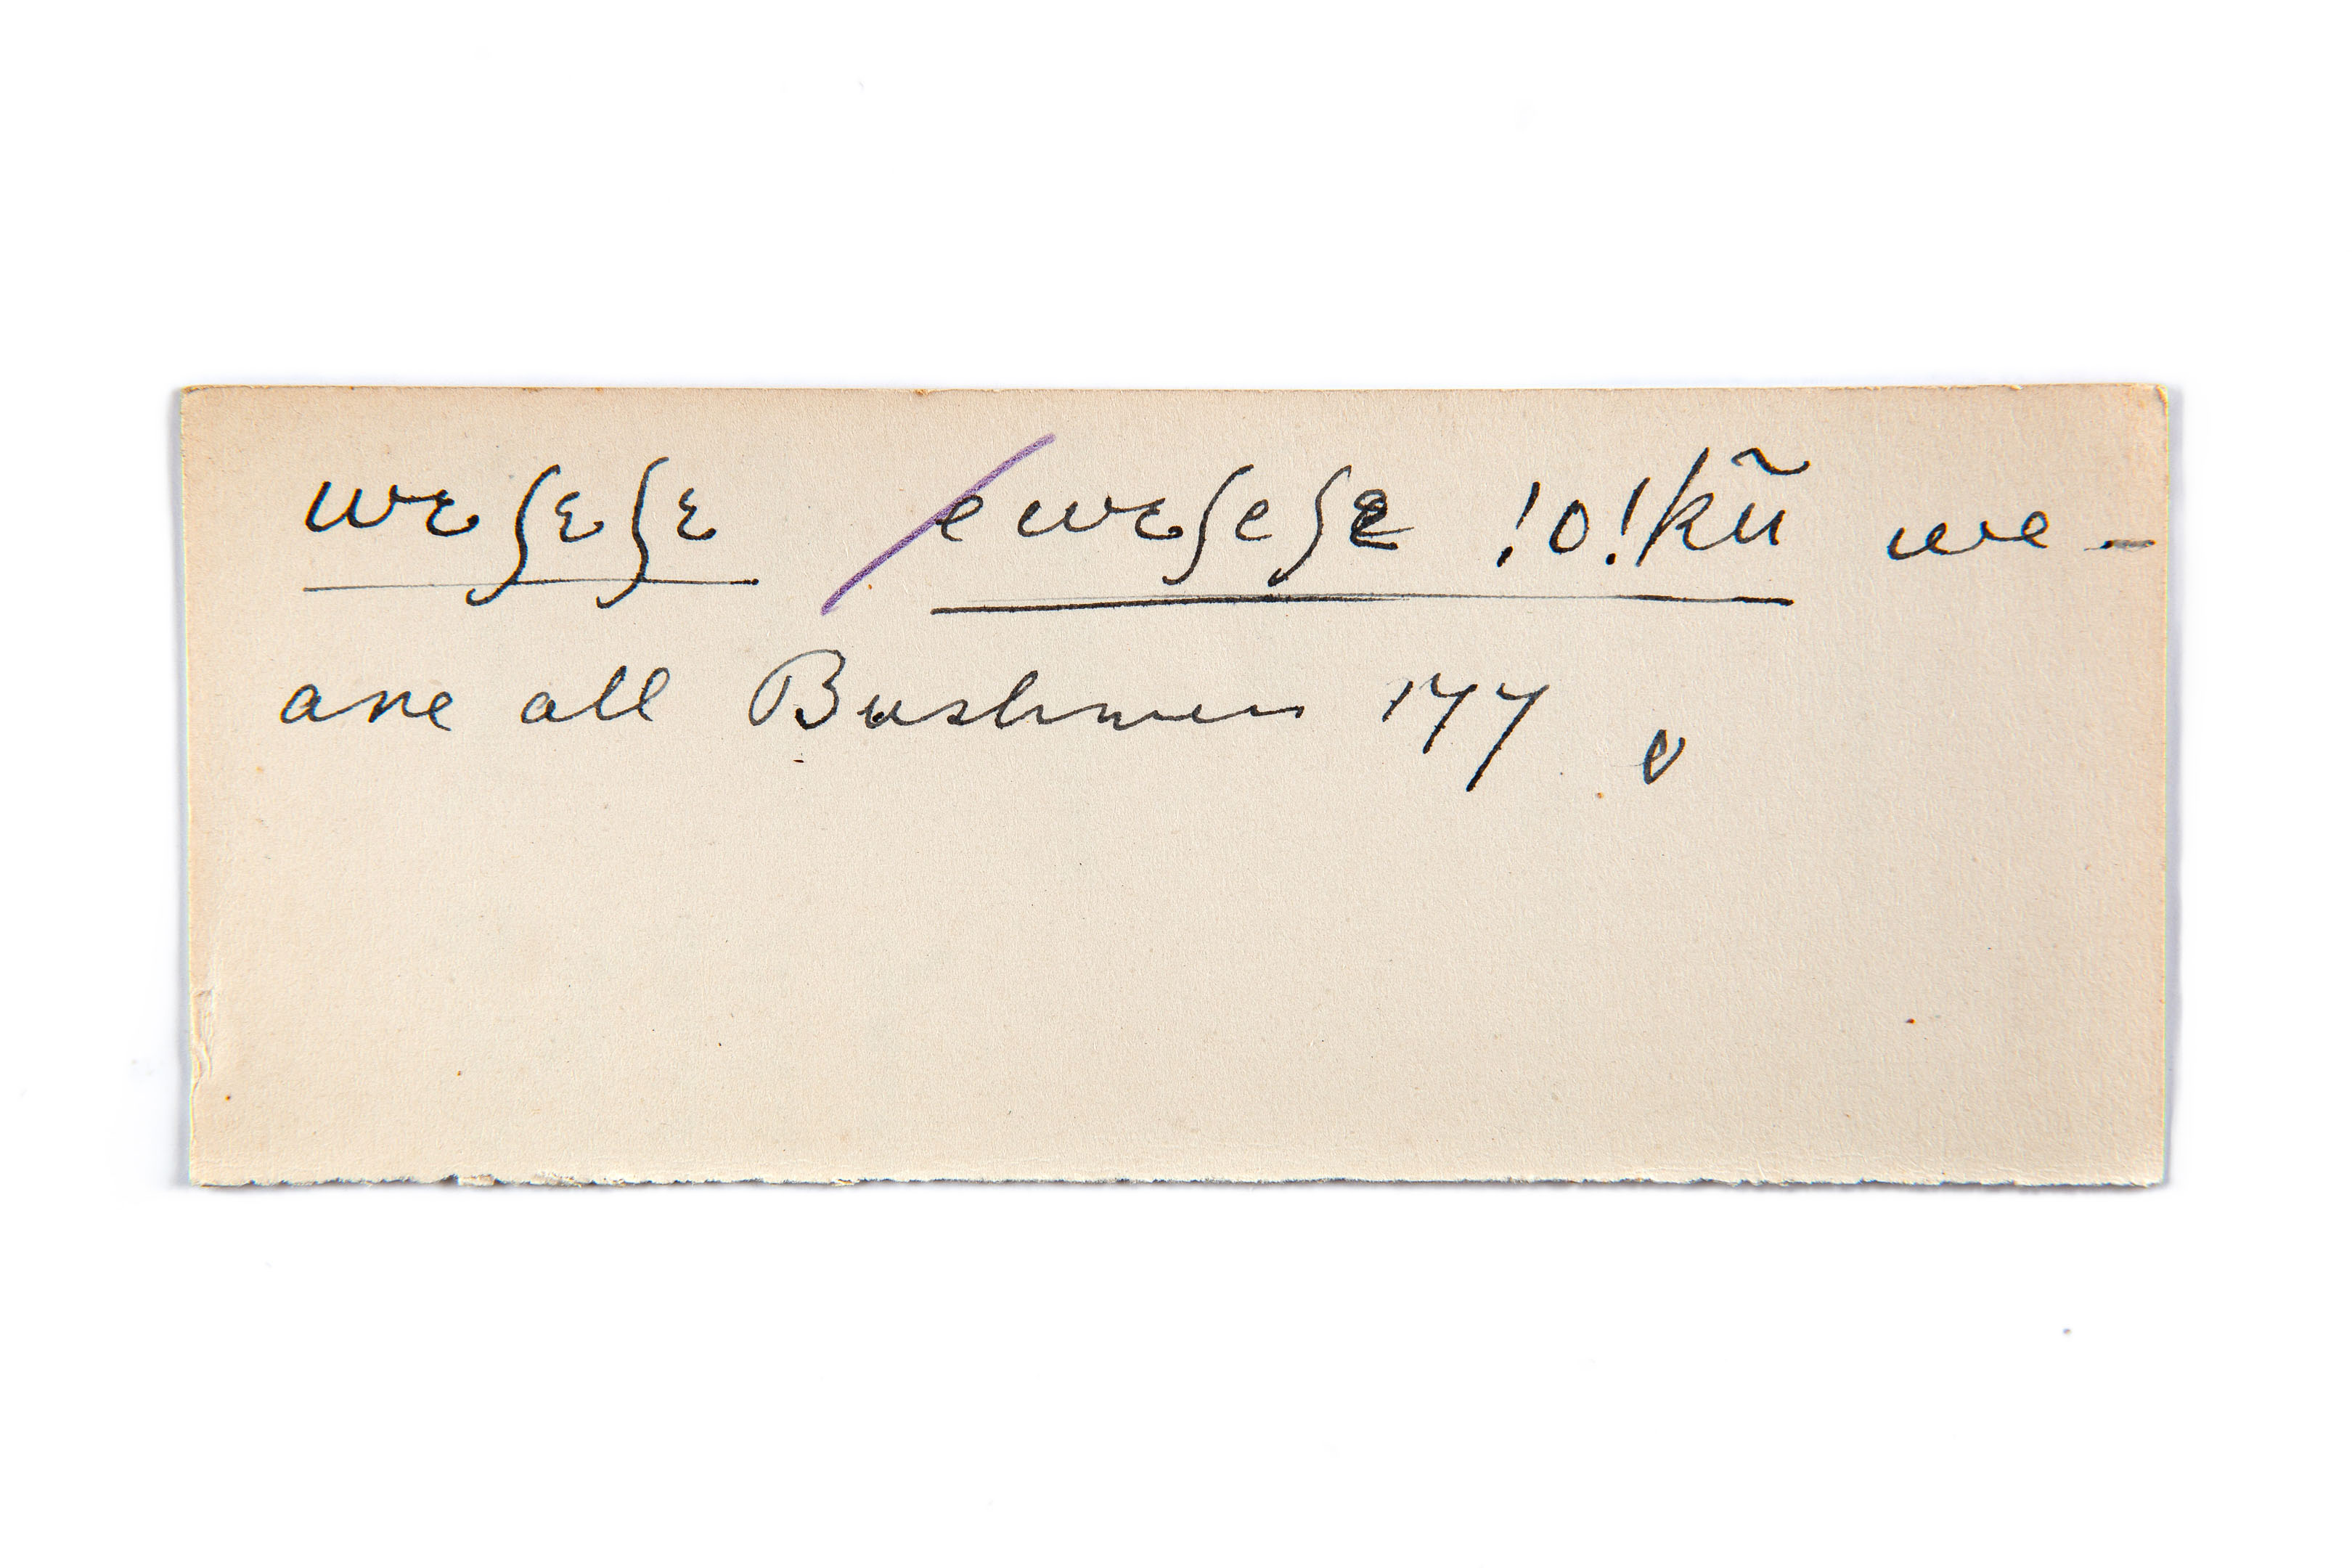 wɛʃɛʃɛ e wɛʃeʃe !o!kũ we -
are all Bushmen 177